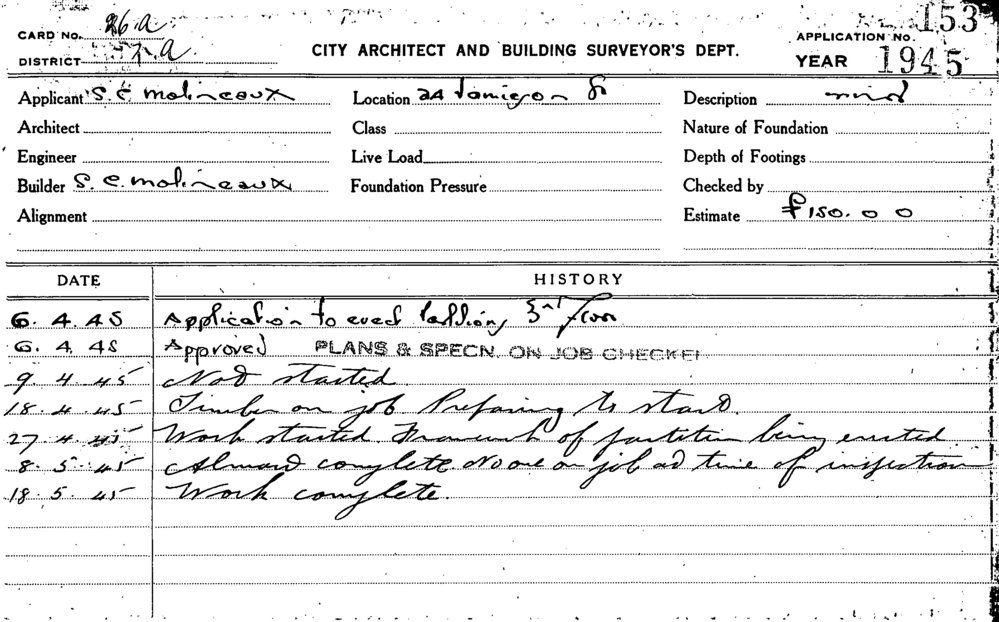 CARD No. 26.a
DISTRICT
CITY ARCHITECT AND BUILDING SURVEYOR'S DEPT.
APPLICATION No. 153
YEAR 1945
Applicant S. E. Molineaux Location 24 Jamieson St Description
Architect Class Nature of Foundation
Engineer Live Load Depth of Footings
Builder S. E. Molineaux Foundation Pressure Checked by
Alignment Estimate £150. 0 0
DATE HISTORY
6. 4. 45 Application to erect 3rd Floor
6. 4. 45 Approved PLANS & SPECN. ON JOB CHECKED
9. 4. 45 Not started.
18. 4. 45 Timber on job Preparing to start.
27. 4. 45 Work started. Framework of partition being erected
8. 5. 45 Almost complete. No one on job at time of inspection
18. 5. 45 Work complete.